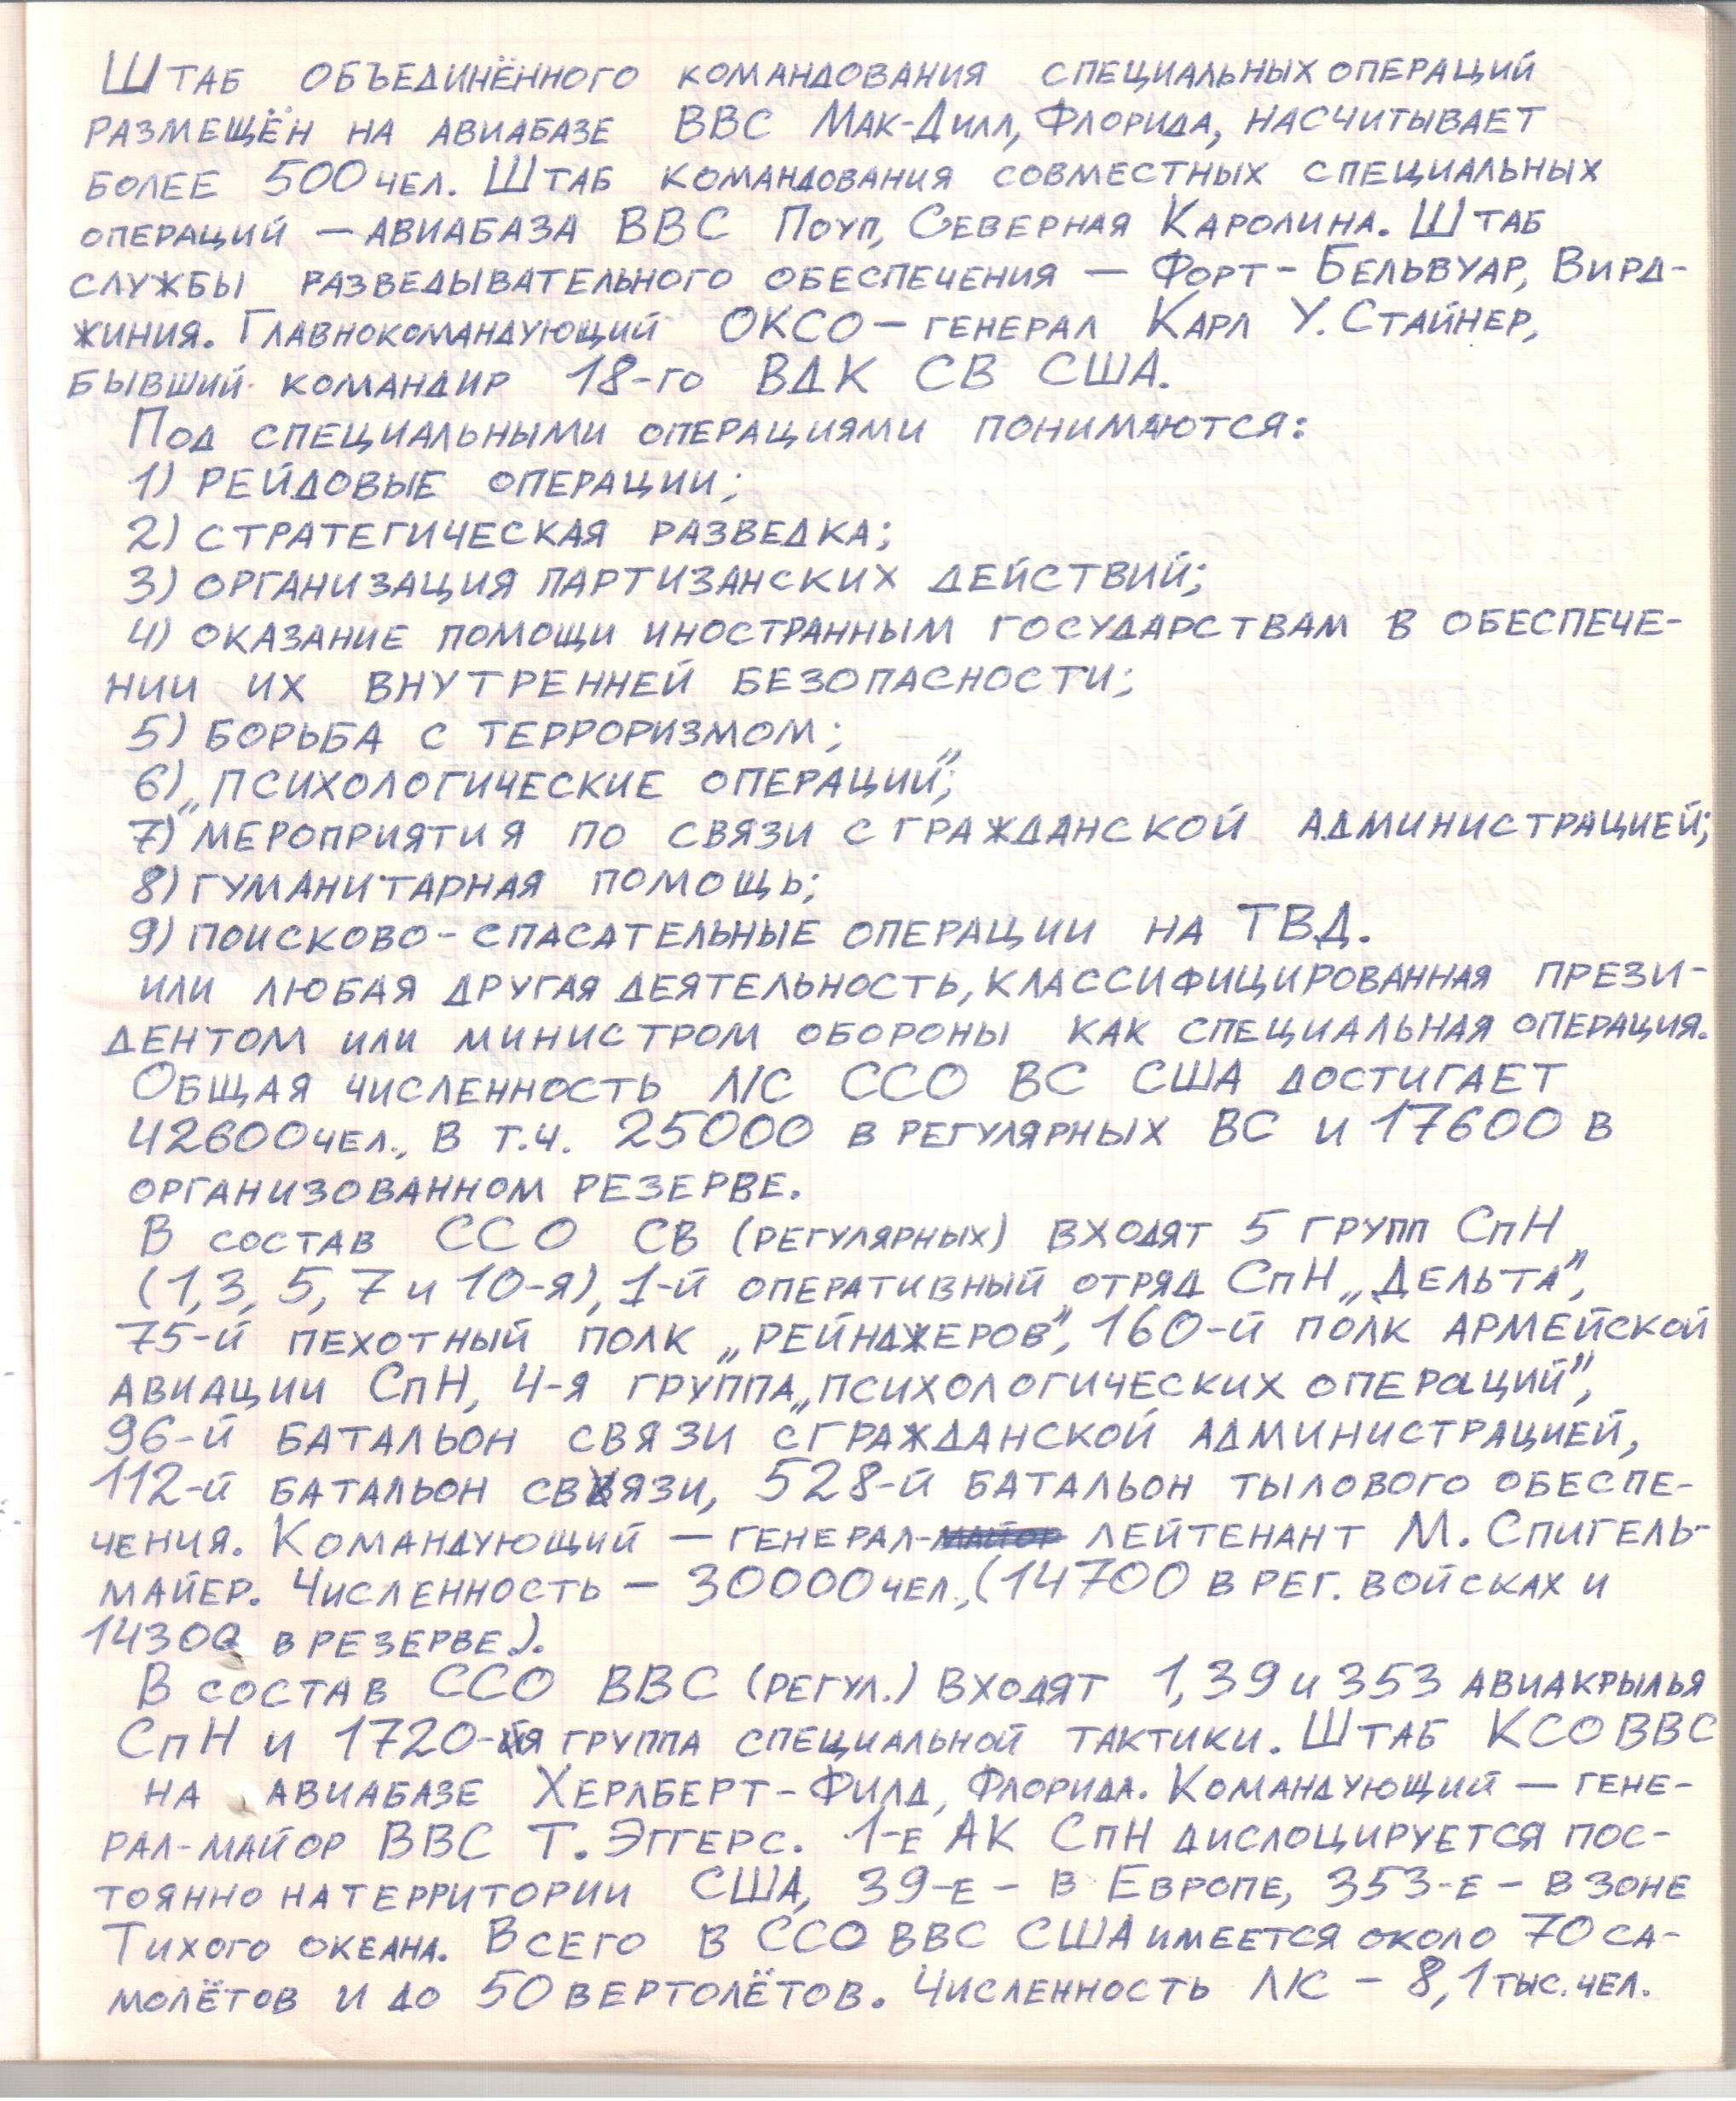 Штаб объединённого командования специальных операций
размещён на авиабазе ВВС Мак-Дилл, Флорида, насчитывает
более 500 чел. Штаб командования совместных специальных
операций — авиабаза ВВС Поуп, Северная Каролина. Штаб
службы разведывательного обеспечения — Форт-Бельвуар, Вирд-
жиния. Главнокомандующий ОКСО — генерал Карл У. Стайнер,
бывший командир 18-го ВДК СВ США.
Под специальными операциями понимаются:
1) рейдовые операции;
2) стратегическая разведка;
3) организация партизанских действий;
4) оказание помощи иностранным государствам в обеспече-
нии их внутренней безопасности;
5) борьба с терроризмом;
6) „психологические операции";
7) мероприятия по связи с гражданской администрацией;
8) гуманитарная помощь;
9) поисково-спасательные операции на ТВД.
или любая другая деятельность, классифицированная прези-
дентом или министром обороны как специальная операция.
Общая численность л/с ССО ВС США достигает
42600 чел., в т.ч. 25000 в регулярных ВС и 17600 в
организованном резерве.
В состав ССО СВ (регулярных) входят 5 групп СпН
(1, 3, 5, 7 и 10-я), 1-й оперативный отряд СпН „Дельта",
75-й пехотный полк „рейнджеров", 160-й полк армейской
авиации СпН, 4-я группа „психологических операций",
96-й батальон связи с гражданской администрацией,
112-й батальон связи, 528-й батальон тылового обеспе-
чения. Командующий — генерал-майор лейтенант М. Спигель-
майер. Численность — 30000 чел., (14700 в рег. войсках и
14300 в резерве.).
В состав ССО ВВС (регул.) входят 1, 39 и 353 авиакрылья
СпН и 1720-я группа специальной тактики. Штаб КСО ВВС
на авиабазе Херлберт-Филд, Флорида. Командующий — гене-
рал-майор ВВС Т. Эггерс. 1-е АК СпН дислоцируется пос-
тоянно на территории США, 39-е — в Европе, 353-е — в зоне
Тихого океана. Всего в ССО ВВС США имеется около 70 са-
молётов и до 50 вертолётов. Численность л/с — 8,1 тыс. чел.